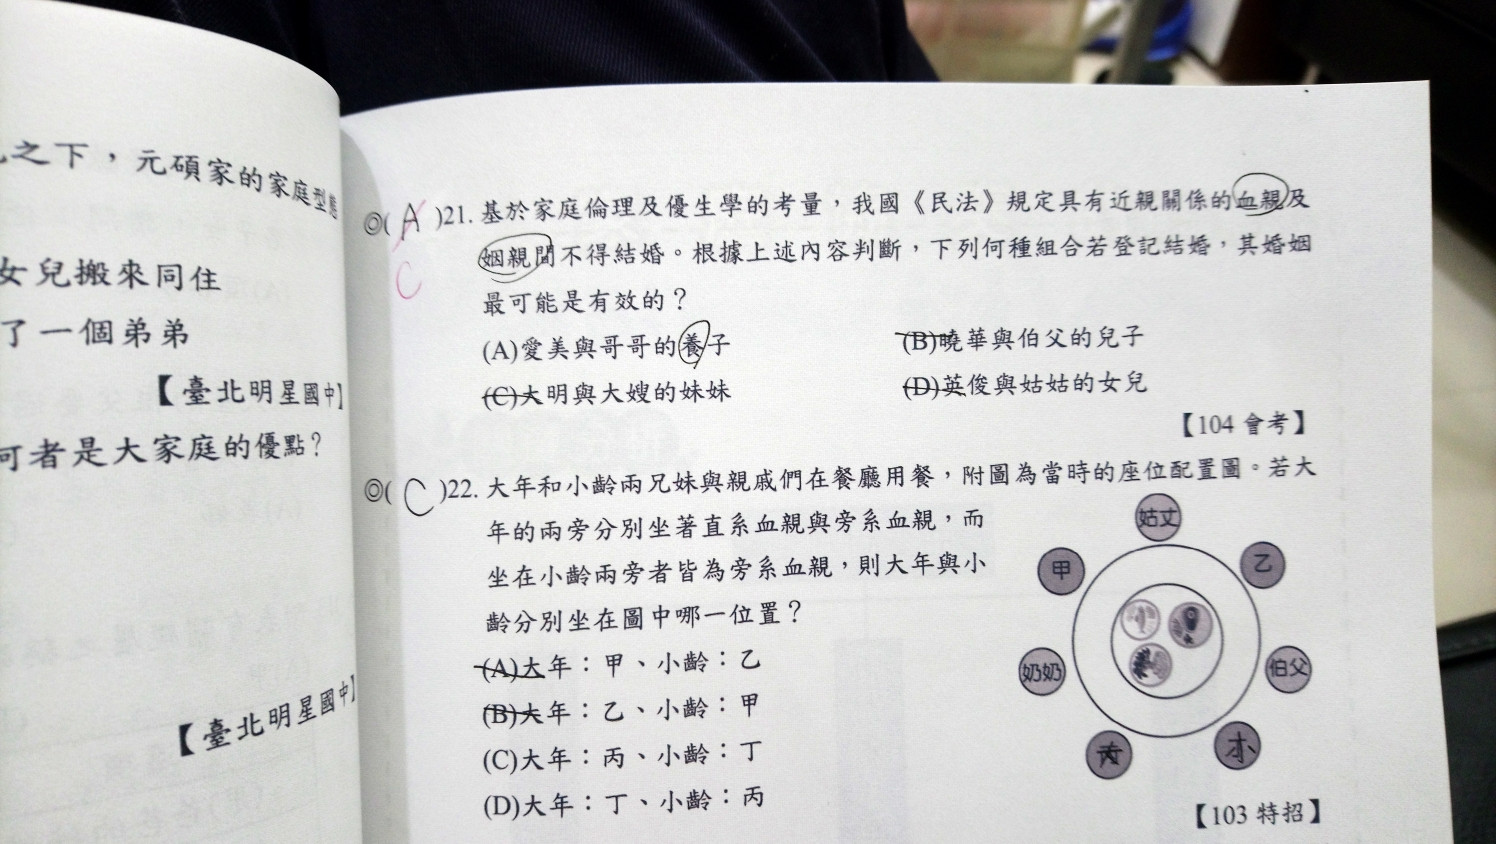 之下，元碩家的家庭型態
女兒搬來同住
了一個弟弟
【臺北明星國中】
可者是大家庭的優點？
【臺北明星國中】
◎( A )21. 基於家庭倫理及優生學的考量，我國《民法》規定具有近親關係的血親及
C
姻親間不得結婚。根據上述內容判斷，下列何種組合若登記結婚，其婚姻
最可能是有效的？
(A)愛美與哥哥的養子
(B)曉華與伯父的兒子
(C)大明與大嫂的妹妹
(D)英俊與姑姑的女兒
【104 會考】
◎( C )22. 大年和小齡兩兄妹與親戚們在餐廳用餐，附圖為當時的座位配置圖。若大
年的兩旁分別坐著直系血親與旁系血親，而
坐在小齡兩旁者皆為旁系血親，則大年與小
齡分別坐在圖中哪一位置？
(A)大年：甲、小齡：乙
(B)大年：乙、小齡：甲
(C)大年：丙、小齡：丁
(D)大年：丁、小齡：丙
姑丈
甲
乙
奶奶
伯父
大
小
【103 特招】